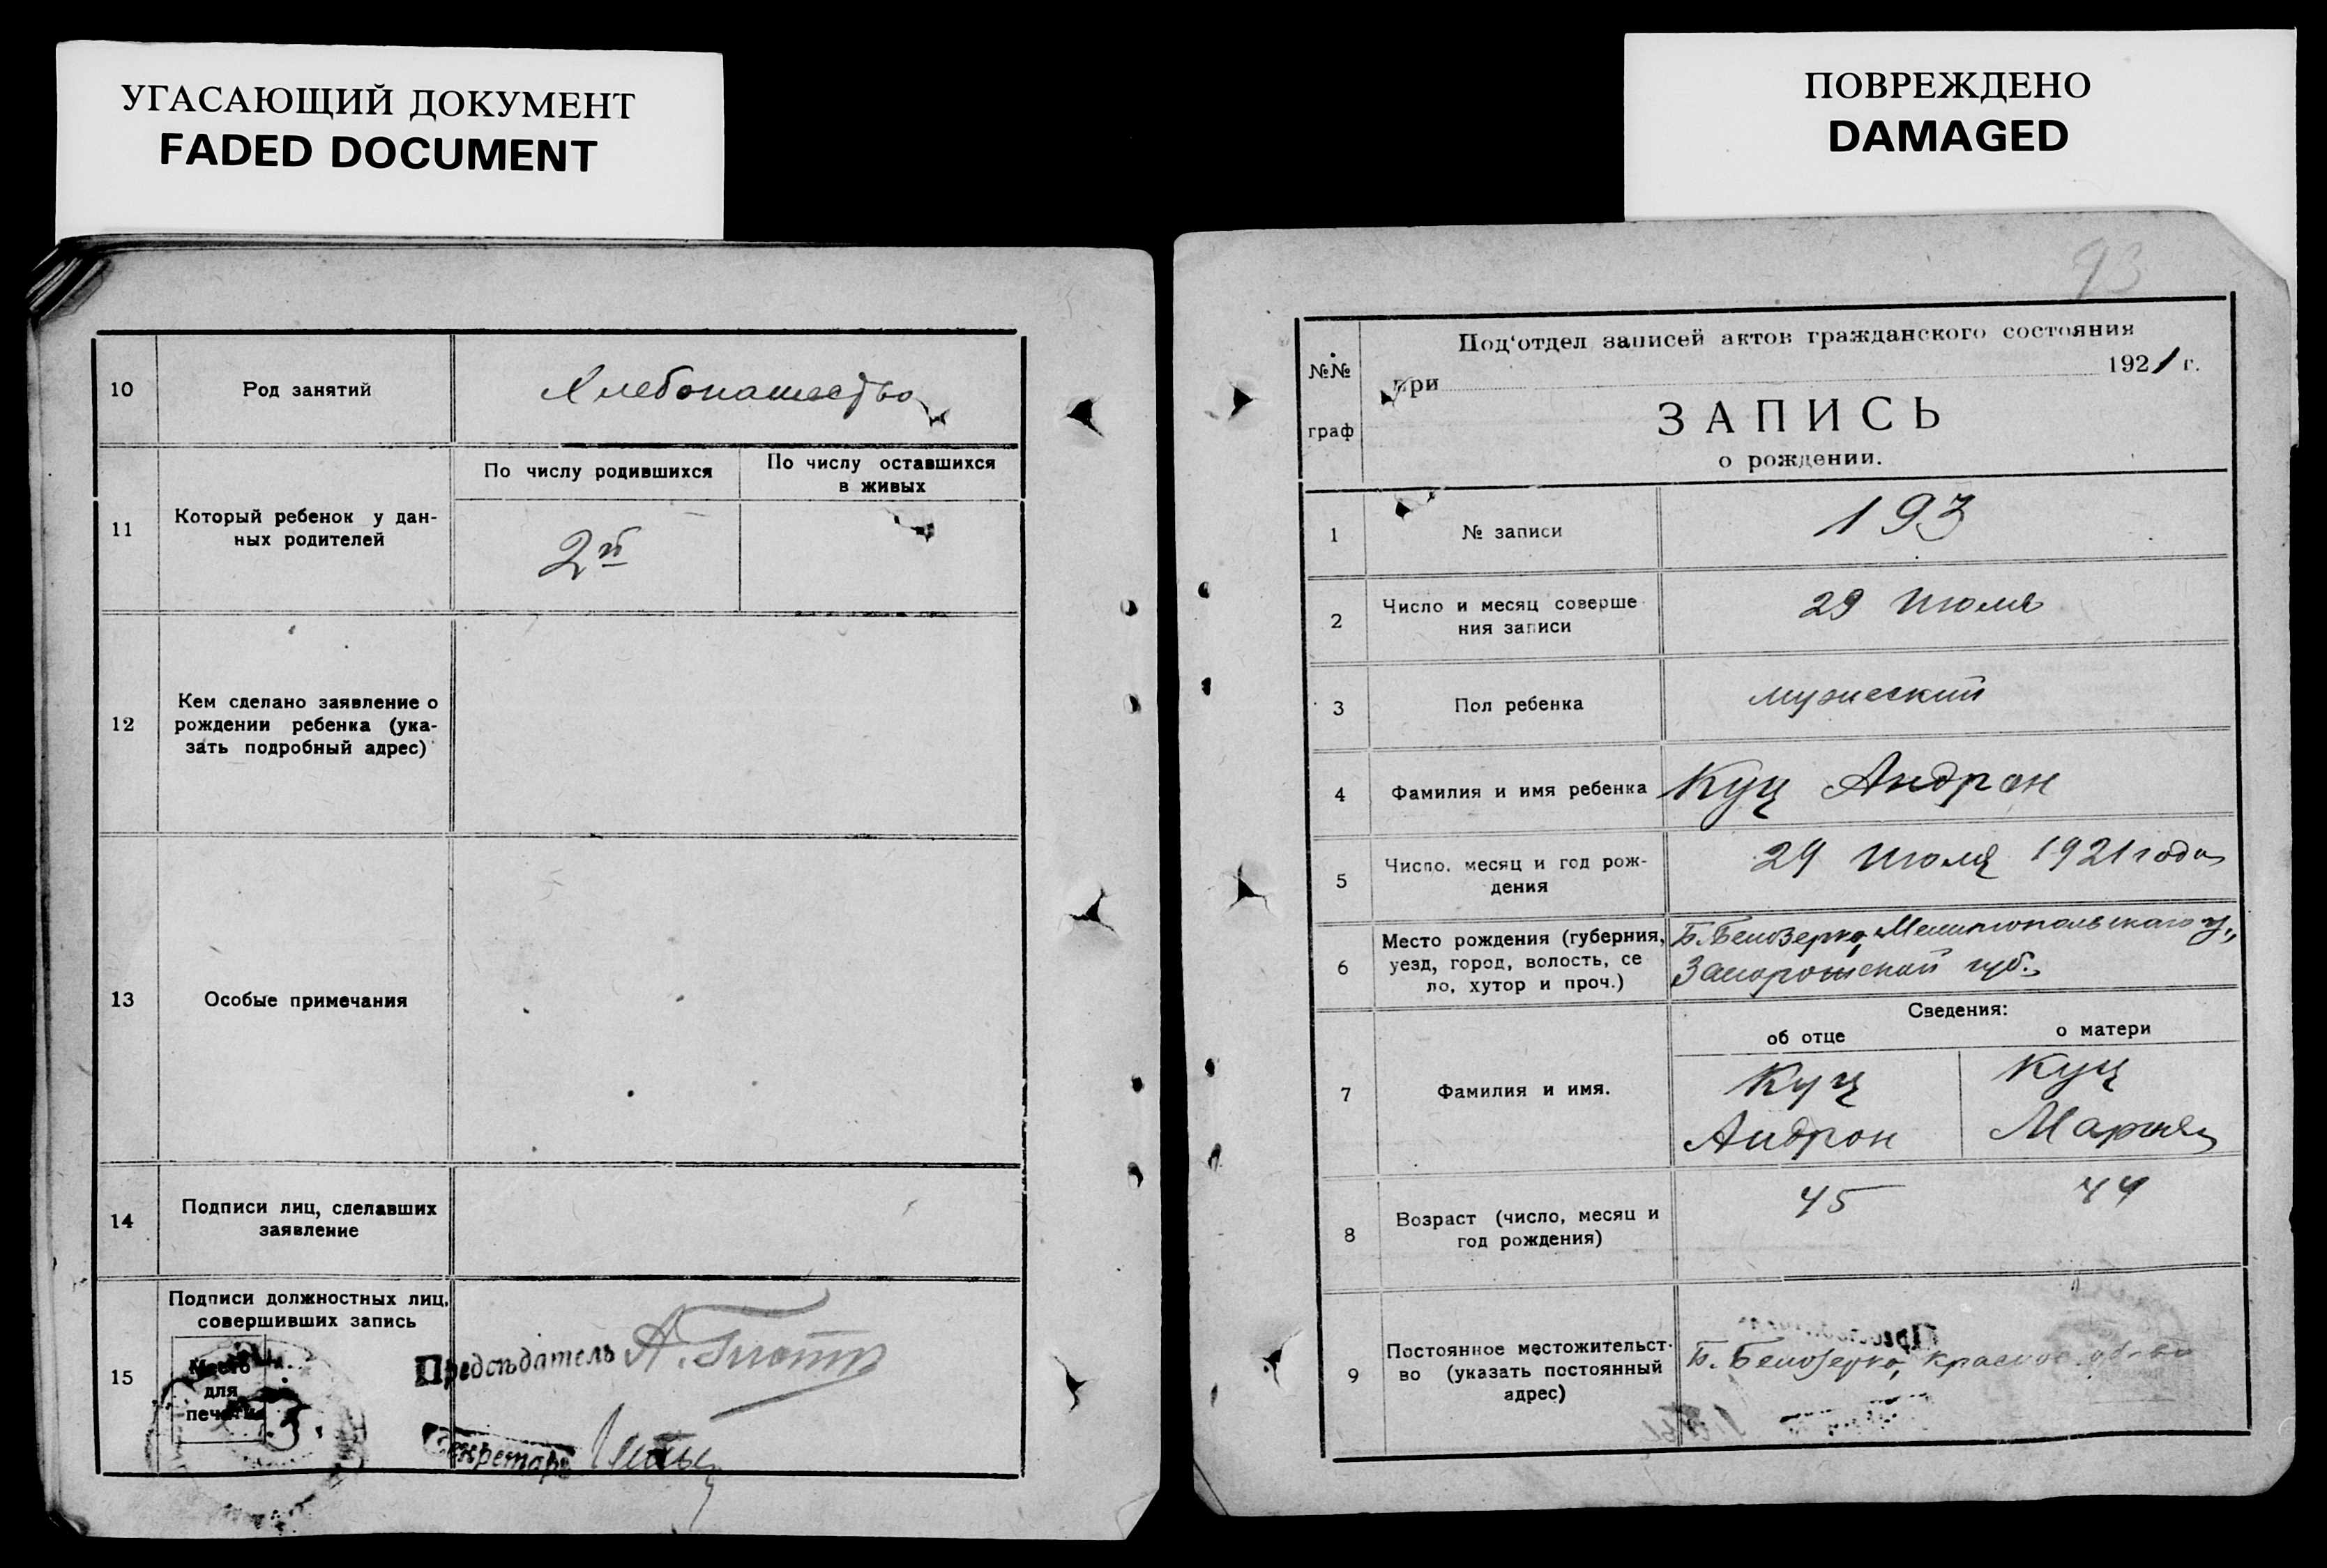 УГАСАЮЩИЙ ДОКУМЕНТ
FADED DOCUMENT
10
Род занятий
Хлебопашество
11
Который ребенок у дан-
ных родителей
По числу родившихся
2й
По числу оставшихся
в живых
12
Кем сделано заявление о
рождении ребенка (ука-
зать подробный адрес)
13
Особые примечания
14
Подписи лиц, сделавших
заявление
15
Подписи должностных лиц,
совершивших запись
Место
для
печати
Председатель А.
Секретарь
ПОВРЕЖДЕНО
DAMAGED
93
№№
граф
Под'отдел записей актов гражданского состояния
при 1921 г.
ЗАПИСЬ
о рождении.
1
№ записи
193
2
Число и месяц соверше
ния записи
29 Июля
3
Пол ребенка
мужеский
4
Фамилия и имя ребенка
Куц Андрон
5
Число, месяц и год рож-
дения
29 Июля 1921 года
6
Место рождения (губерния,
уезд, город, волость, се
ло, хутор и проч.)
Б. Белозерка, Мелитопольскаго у.,
Запорожской губ.
Сведения:
об отце
о матери
7
Фамилия и имя.
Куц
Андрон
Куц
Мария
8
Возраст (число, месяц и
год рождения)
45
44
9
Постоянное местожительст-
во (указать постоянный
адрес)
Б. Белозерка,